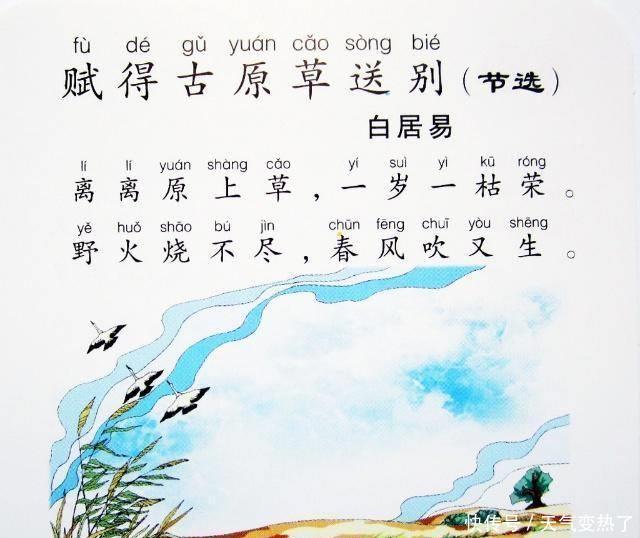 fù dé gǔ yuán cǎo sòng bié
赋得古原草送别（节选）
白居易
lí lí yuán shàng cǎo yí suì yì kū róng
离离原上草，一岁一枯荣。
yě huǒ shāo bú jìn chūn fēng chuī yòu shēng
野火烧不尽，春风吹又生。
快传号／天气变热了